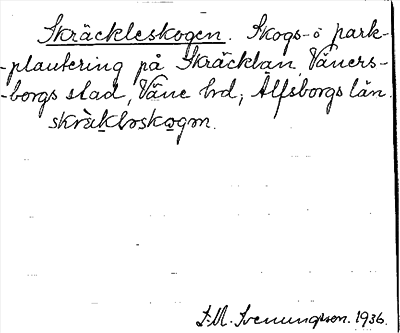 Skräckleskogen. Skogs- o park-
-plantering på Skräcklan, Väners-
-borgs stad, Väne hrd, Älfsborgs län.
skräklɘskogɘn.
F.M. Svenungsson. 1936.